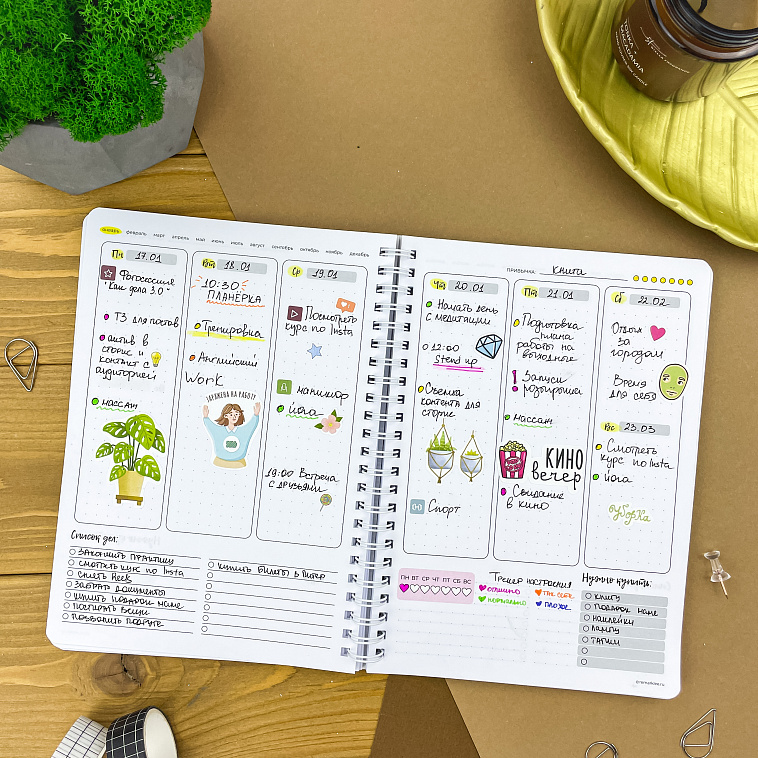 январь февраль март апрель май июнь июль август сентябрь октябрь ноябрь декабрь
Пн 17.01
Фотосессия
"Как дела 3.0"
ТЗ для постов
актив в
сторис и
контакт с
аудиторией
массаж
Вт 18.01
10:30
ПЛАНЁРКА
Тренировка
Английский
Work
ЗАРЯЖЕНА НА РАБОТУ
Ср 19.01
Посмотреть
курс по Insta
маникюр
йога
19:00 Встреча
с друзьями
Список дел:
закончить практику
смотреть курс по Insta
снять Reels
забрать документы
купить подарок маме
постирать вещи
позвонить подруге
купить билеты в Питер
ПРИВЫЧКА: книга
Чт 20.01
Начать день
с медитации
12:00
Stend up
Съёмка
контента для
сторис
Спорт
Пт 21.01
Подготовка
плана
работы на
выходные
Запуск
розыгрыша
массаж
КИНО
вечер
Свидание
в кино
Сб 22.02
Отдых
за
городом
Время
для себя
Вс 23.03
Смотреть
курс по Insta
йога
уборка
ПН ВТ СР ЧТ ПТ СБ ВС
Трекер настроения
отлично
так себе
нормально
плохое
Нужно купить:
книгу
подарок маме
наклейки
лампу
тапки
TONKA
MACADAMIA